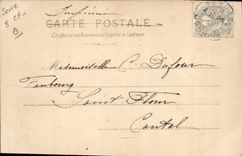 Imprimé
Serie
CARTE POSTALE
Ce côté est exclusivement réservé à l'adresse
Mademoiselle C. Dufour
Faubourg
Saint Flour
Cantal